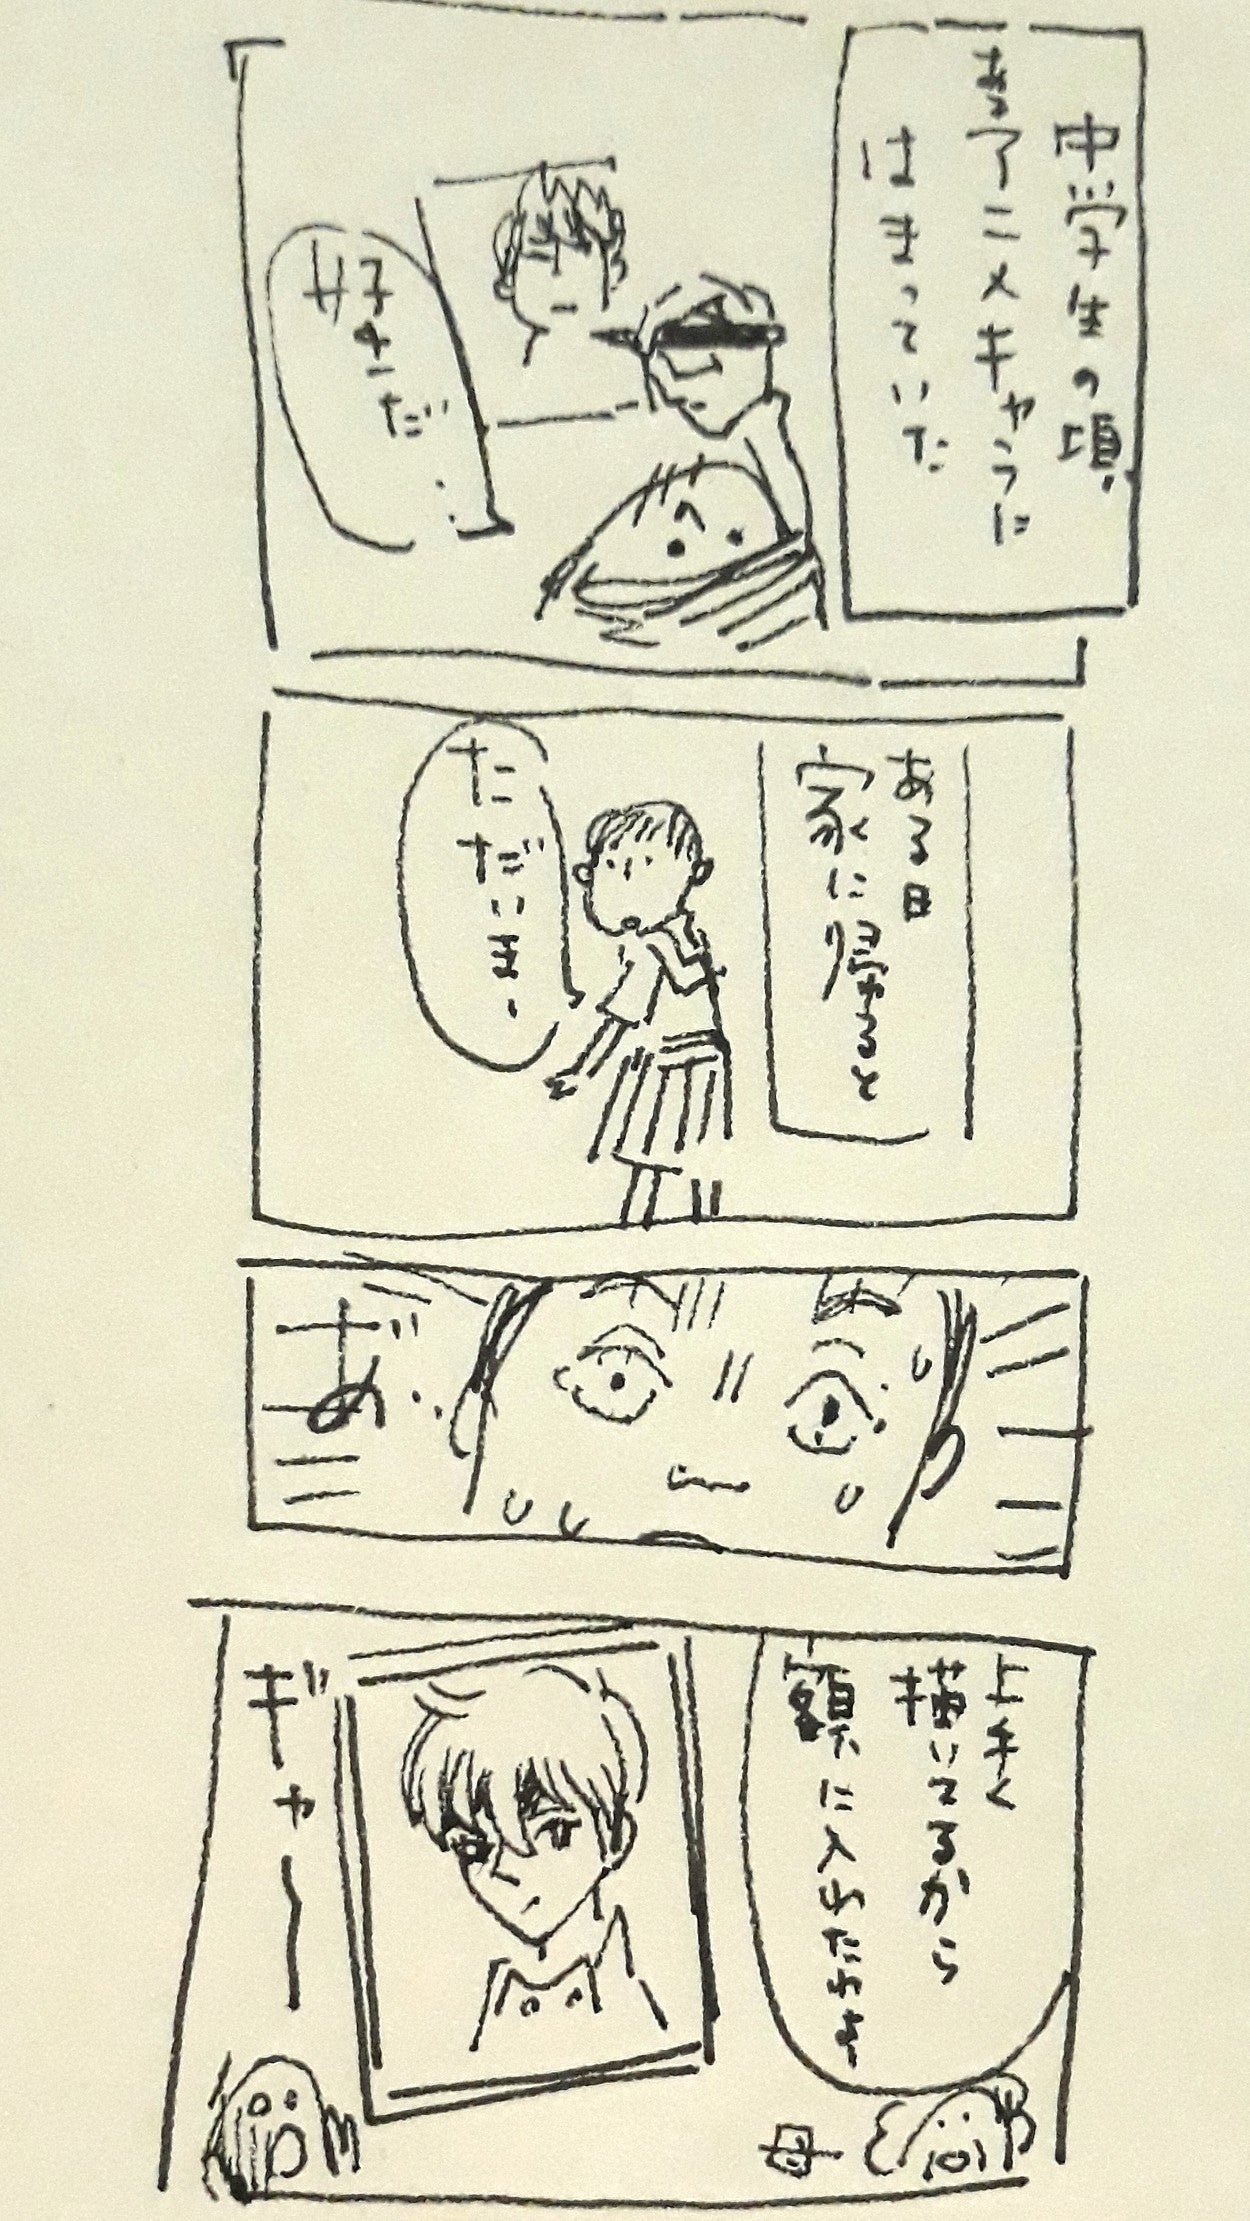 中学生の頃、
あるアニメキャラに
はまっていた
好きだ…
ある日
家に帰ると
ただいまー
あ゛…
上手く
描いてるから
額に入れたわよ
母
ギャー